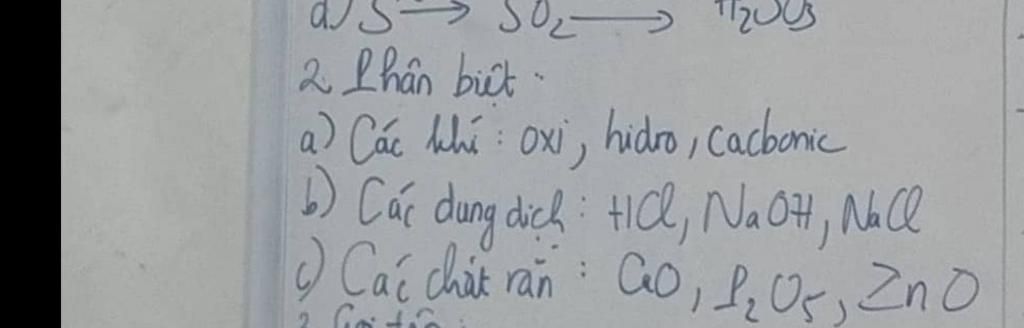 a) S → SO₂ → H₂SO₃
2. Phân biệt.
a) Các khí: oxi, hidro, cacbonic
b) Các dung dịch: HCl, NaOH, NaCl
c) Các chất rắn: CaO, P₂O₅, ZnO
3. Gọi tên: